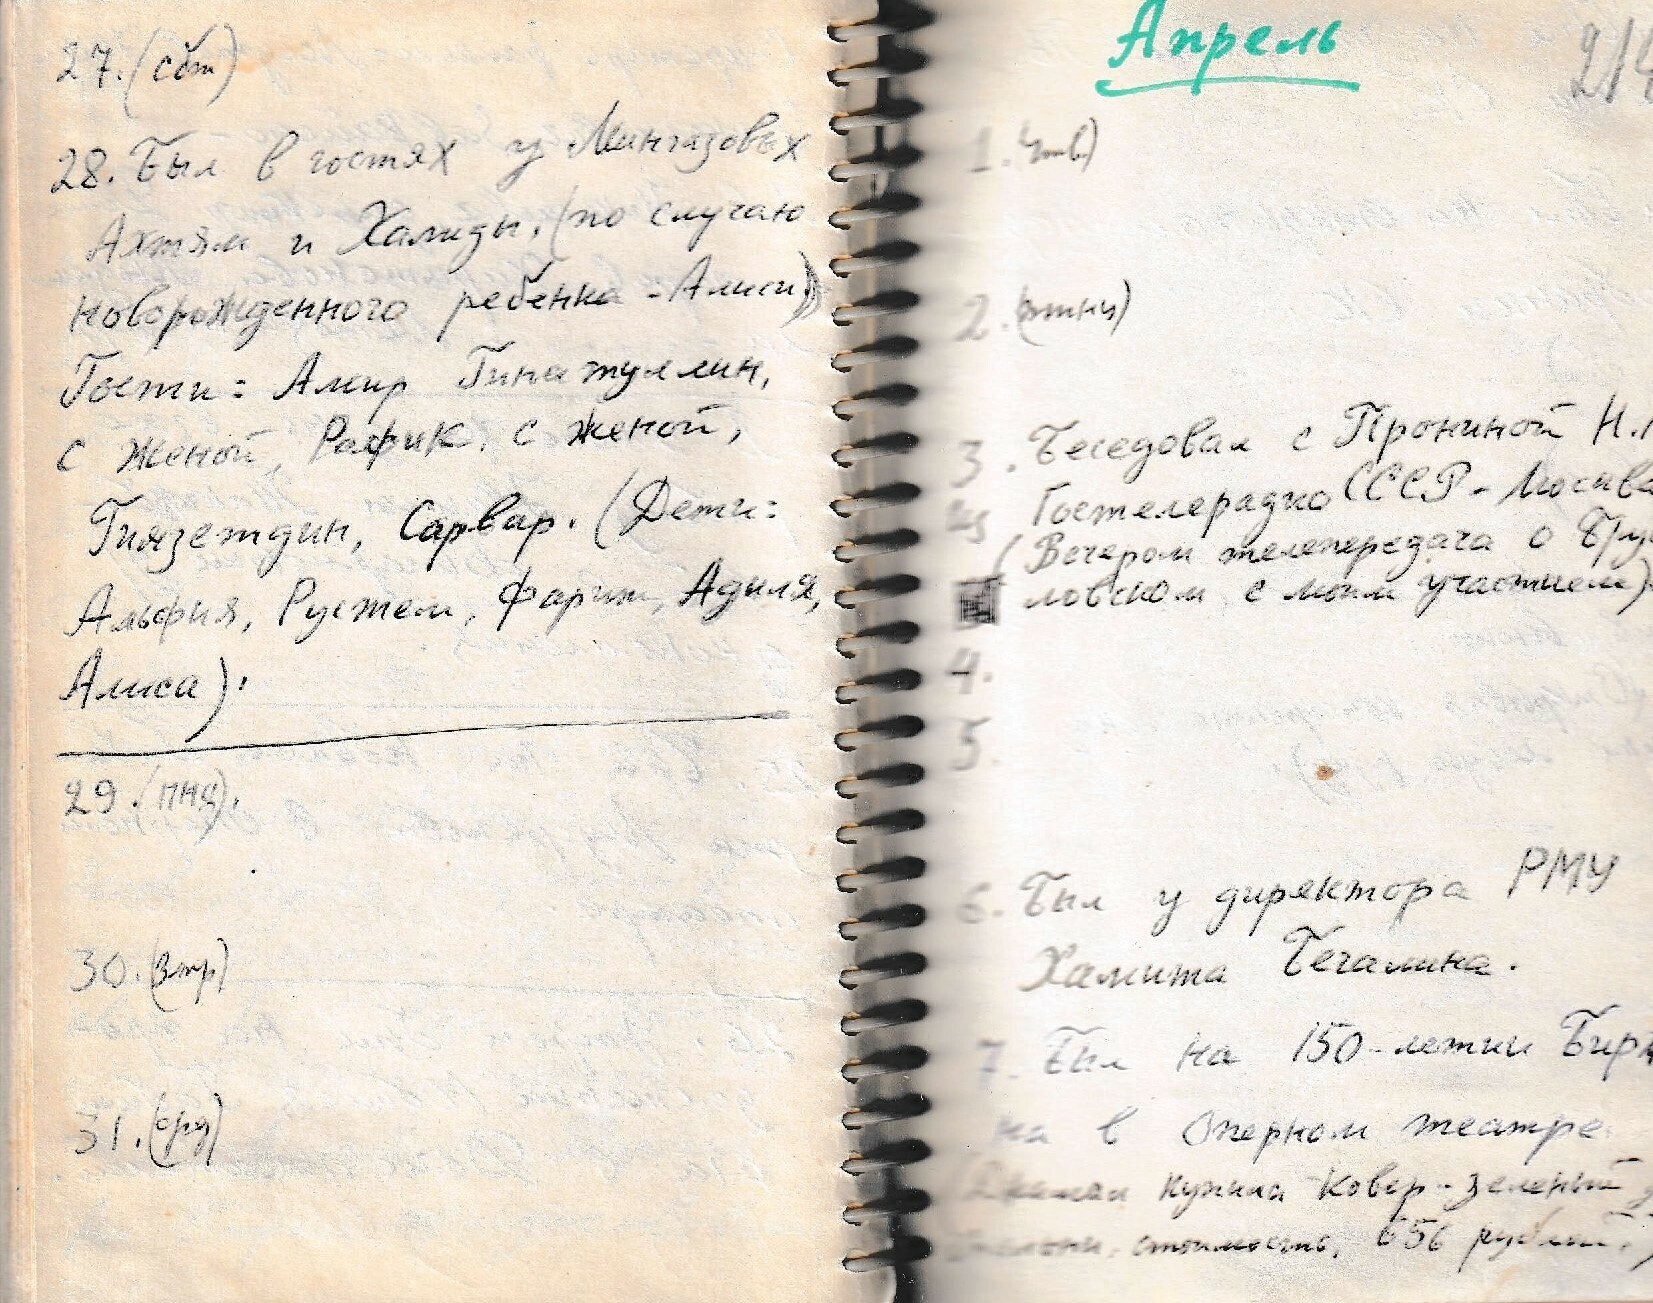 27. (сбт)
28. Был в гостях у Мингазовых
Ахтям и Халиды, (по случаю
новорожденного ребенка - Алисы)
Гости: Амир Гинатуллин,
с женой, Рафик с женой,
Гиязетдин, Сарвар. (Дети:
Альфия, Рустем, Фарит, Адиля,
Алиса).
29. (пнд).
30. (втр)
31. (срд)
Апрель
214
1. (чтв)
2. (птн)
3. Беседовал с Прониной Н.
Гостелерадио СССР - Москва
(Вечером телепередача о
ловском с моим участием)
4.
5.
6. Был у директора РМУ
Хамита Бегалина.
7. Был на 150-летии
на в Оперном театре
купила ковер - зеленый
стоимость, 656 рублей.)